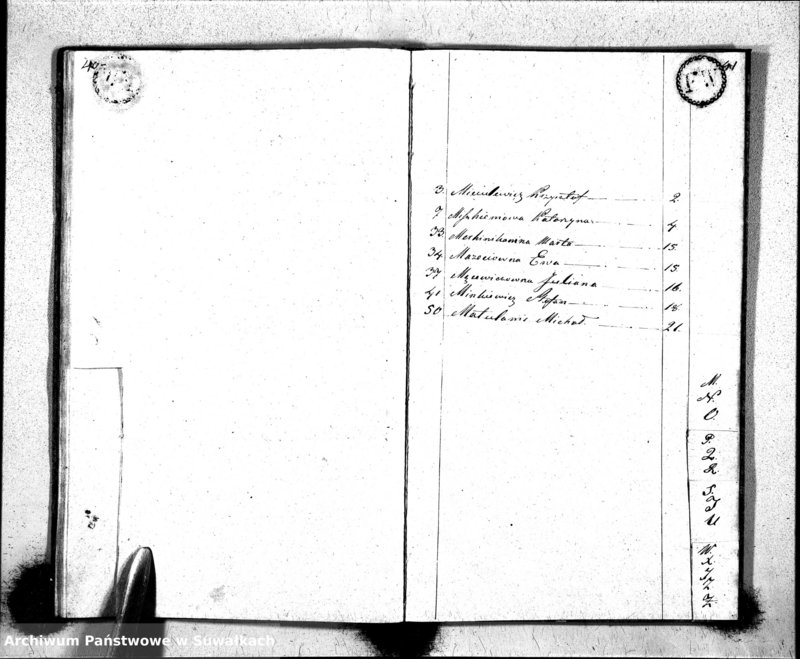 40
FW
41
3. Miciulewicz Krzysztof 2.
7. Katarzyna 4
33. Marta 15.
34 Mazeciowna Ewa 15.
37 Juliana 16.
41 Minkiewicz Stefan 18.
50 Matulanis Michał 21.
M.
N.
O.
P.
Q.
R.
S.
T.
U
W.
Archiwum Państwowe w Suwałkach